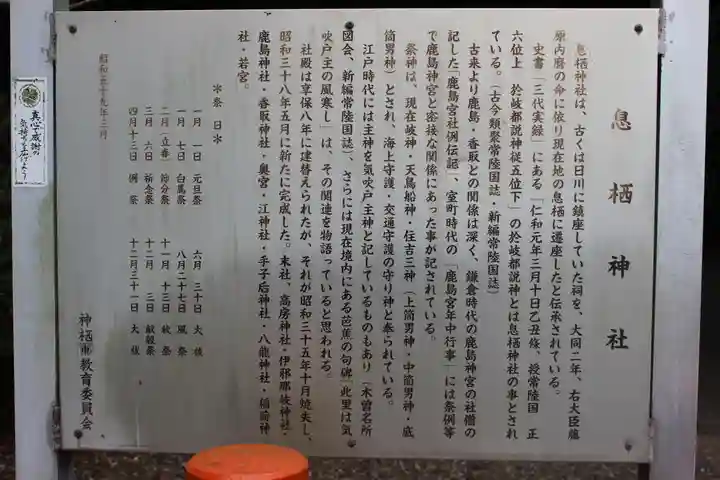 息栖神社
息栖神社は、古くは日川に鎮座していた祠を、大同二年、右大臣藤
原内麿の命に依り現在地の息栖に遷座したと伝承されている。
史書「三代実録」にある「仁和元年三月十日乙丑條、授常陸国 正
六位上 於岐都説神従五位下」の於岐都説神とは息栖神社の事とされ
ている。(古今類聚常陸国誌・新編常陸国誌)
古来より鹿島・香取との関係は深く、鎌倉時代の鹿島神宮の社僧の
記した「鹿島宮社例伝記」、室町時代の「鹿島宮年中行事」には祭例等
で鹿島神宮と密接な関係にあった事が記されている。
祭神は、現在岐神・天鳥船神・住吉三神(上筒男神・中筒男神・底
筒男神)とされ、海上守護・交通守護の守り神と奉られている。
江戸時代には主神を気吹戸主神と記しているものもあり(木曽名所
図会、新編常陸国誌)、さらには現在境内にある芭蕉の句碑「此里は気
吹戸主の風寒し」は、その関連を物語っていると思われる。
社殿は享保八年に建替えられたが、それが昭和三十五年十月焼失し、
昭和三十八年五月に新たに完成した。末社、高房神社・伊邪那岐神社・
鹿島神社・香取神社・奥宮・江神社・手子后神社・八龍神社・稲荷神
社・若宮。
*祭日*
一月 一日 元旦祭 六月 三十日 大祓
一月 七日 白馬祭 八月二十七日 風祭
二月(立春) 節分祭 十一月十三日 秋祭
三月 六日 祈念祭 十二月 三日 献穀祭
四月十三日 例祭 十二月三十一日 大祓
昭和五十九年三月
神栖市教育委員会
真心で感謝の
気持を上げよう